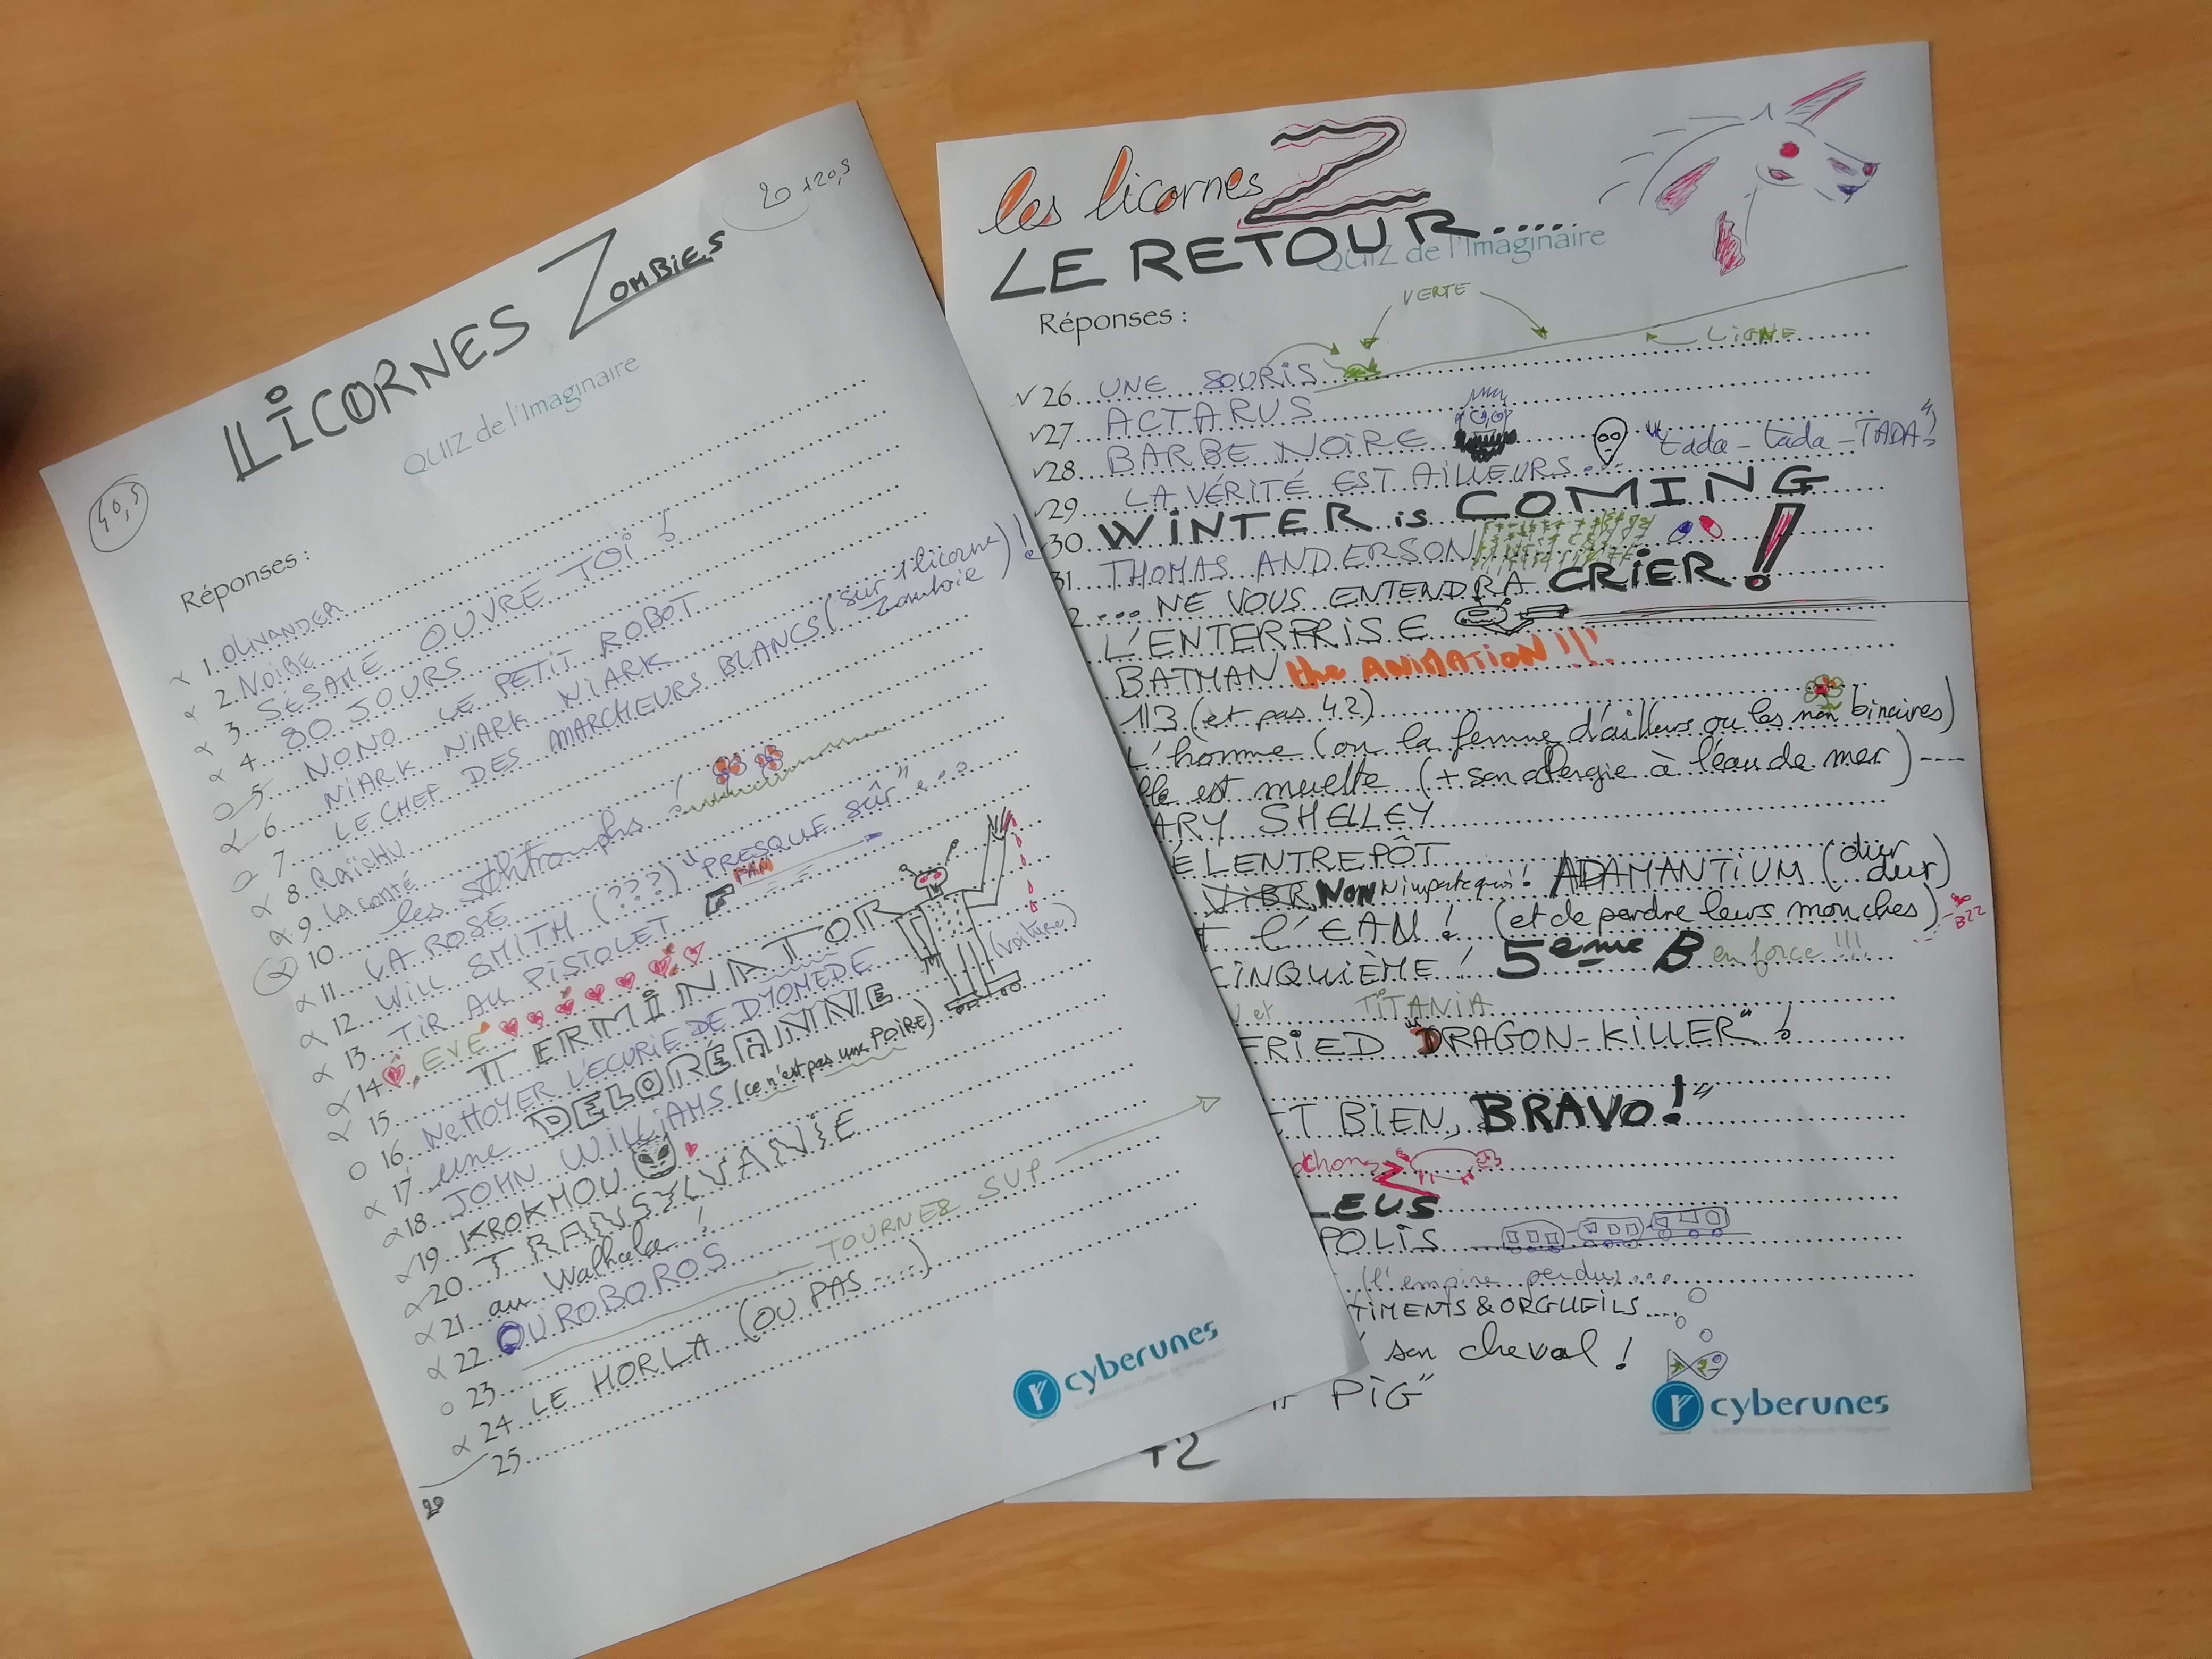 LICORNES ZOMBIES
20 +20,5
QUIZ de l'Imaginaire
40,5
Réponses :
1. OLIVANDER
2. NOIRE
3. SÉSAME OUVRE TOI !
4. 80 JOURS
5. NONO LE PETIT ROBOT
6. NIARK NIARK NIARK
7. LE CHEF DES MARCHEURS BLANCS (sur 1 licorne zombie) !
8. Raïchu
9. La conté
10. les schtroumphs !
11. LA ROSE
12. WILL SMITH (???) "PRESQUE SÛR"...
13. TIR AU PISTOLET PAN
14. EVE
15. TERMINATOR
16. NETTOYER L'ECURIE DE DYOMEDE
17. une DELORÉANNE (voiture)
18. JOHN WILLIAMS (ce n'est pas une POIRE)
19. KROKMOU
20. TRANSYLVANIE
21. au Walhala !
22. OUROBOROS
23. TOURNER SVP
24. LE HORLA (OU PAS ....)
25.
20
cyberunes
les licornes Z
LE RETOUR.....
QUIZ de l'Imaginaire
Réponses :
VERTE
LIGNE
26 UNE SOURIS
27 ACTARUS
28 BARBE NOIRE
29 LA VÉRITÉ EST AILLEURS... "tada-tada-TADA!"
30 WINTER is COMING
31 THOMAS ANDERSON
2 ... NE VOUS ENTENDRA CRIER !
L'ENTERPRISE
BATMAN the ANIMATION !!!
113 (et pas 42)
L'homme (ou la femme d'ailleurs ou les non binaires)
lle est muette (+ son allergie à l'eau de mer)----
ARY SHELLEY
É L'ENTREPÔT
VIBR NON N'importe quoi! ADAMANTIUM (dur dur)
T l'EAU ! (et de perdre leurs mouches) BZZ
CINQUIÈME ! 5ème B en force !!!
et TITANIA
FRIED "DRAGON-KILLER" !
CT BIEN, BRAVO !"
chon
LEUS
POLIS
(l'empire perdu...
TIMENTS & ORGUEILS....
son cheval !
PIG"
+2
cyberunes